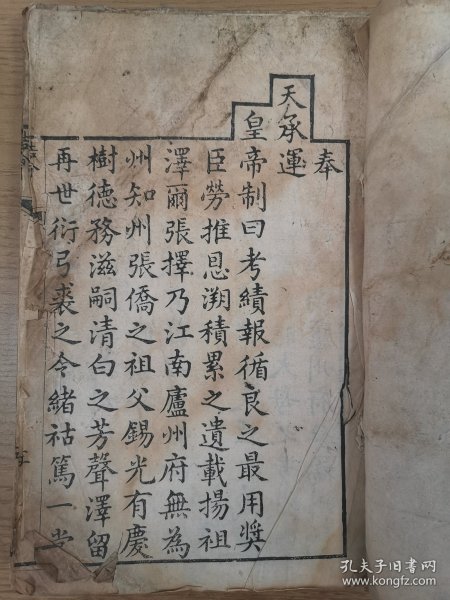 奉
天承運
皇帝制曰考績報循良之最用獎
臣勞推恩溯積累之遺載揚祖
澤爾張擇乃江南廬州府無為
州知州張僑之祖父錫光有慶
樹德務滋嗣清白之芳聲澤留
再世衍弓裘之令緒祜篤一堂
孔夫子旧书网
www.kongfz.com